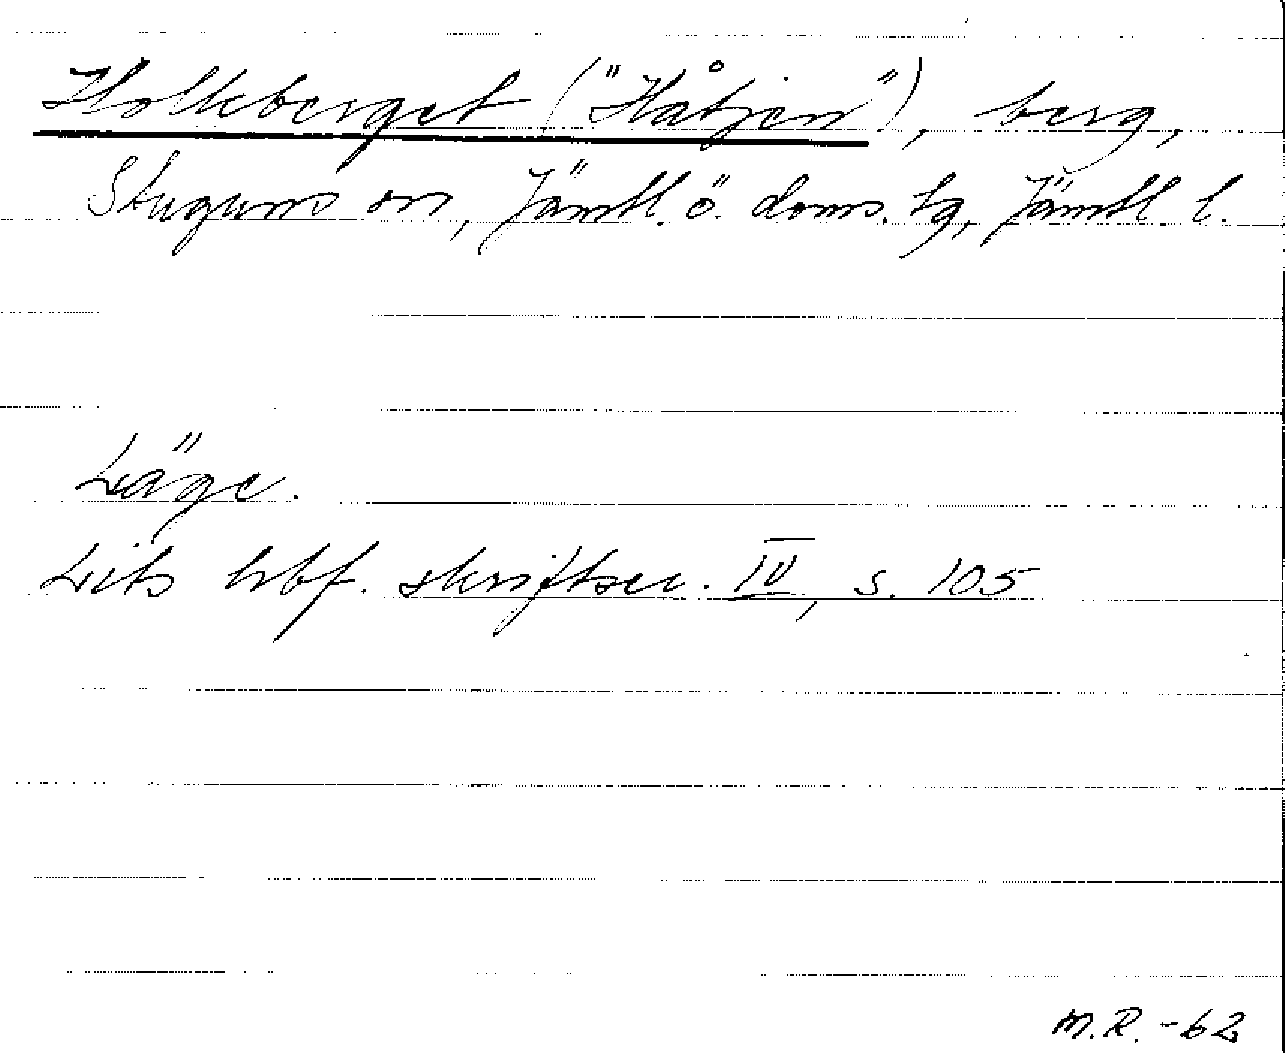 Holkberget ("Håtjen"), berg,
Stuguns sn, Jämtl. ö. doms. tg, Jämtl. l.
Läge.
Lits hbf. skriftser. IV, s. 105
M.R. -62